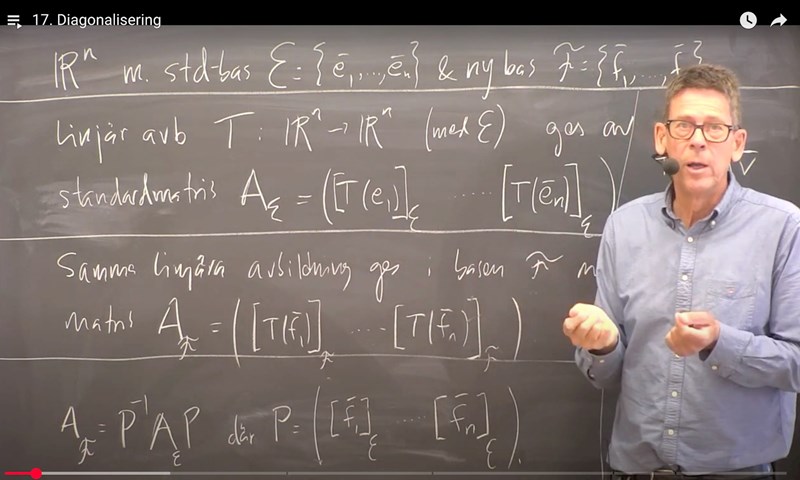 17. Diagonalisering
ℝⁿ m. std-bas ℰ = {ē₁,...,ēₙ} & ny bas ℱ = {f̄₁,...,f̄
linjär avb T: ℝⁿ → ℝⁿ (med ℰ) ges av
v̄
standardmatris A_ℰ = ([T(e₁)]_ℰ ..... [T(ēₙ)]_ℰ)
Samma linjära avbildning ges i basen ℱ
matris A_ℱ = ([T(f̄₁)]_ℱ .... [T(f̄ₙ)]_ℱ)
A_ℱ = P⁻¹A_ℰP där P = ([f̄₁]_ℰ ..... [f̄ₙ]_ℰ).